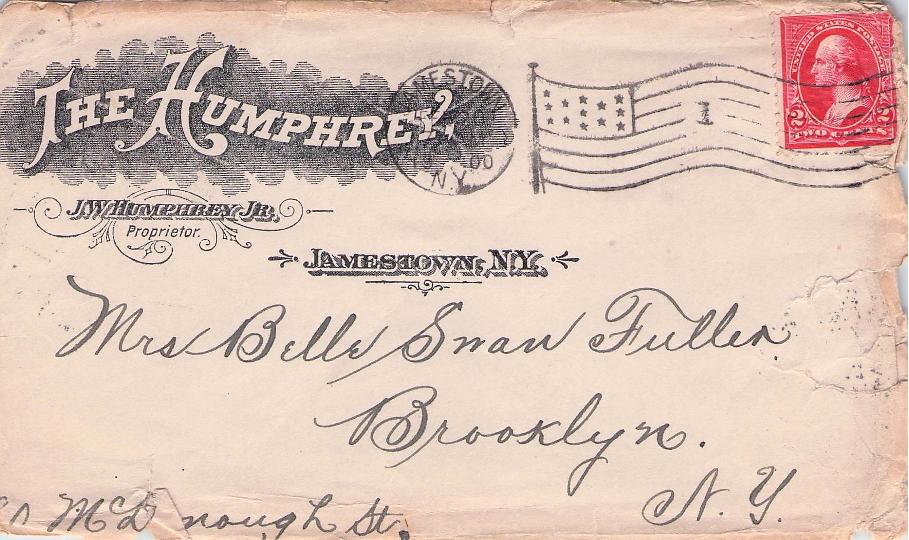 The Humphrey,
J.W. Humphrey Jr.
Proprietor.
Jamestown, N.Y.
JAMESTOWN
00
N.Y.
1
UNITED STATES POSTAGE
2 2
TWO CENTS
Mrs Belle Swan Fuller
Brooklyn.
N.Y.
McDonough St.